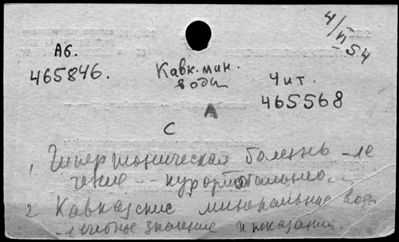 4/II 54
Аб.
465846.
Кавк. мин.
воды
Чит.
465568
А
С
1, Гипертоническая болезнь - ле
чение -- курортобально..
2 Кавказские минеральные воды
- лечебное значение и показания.